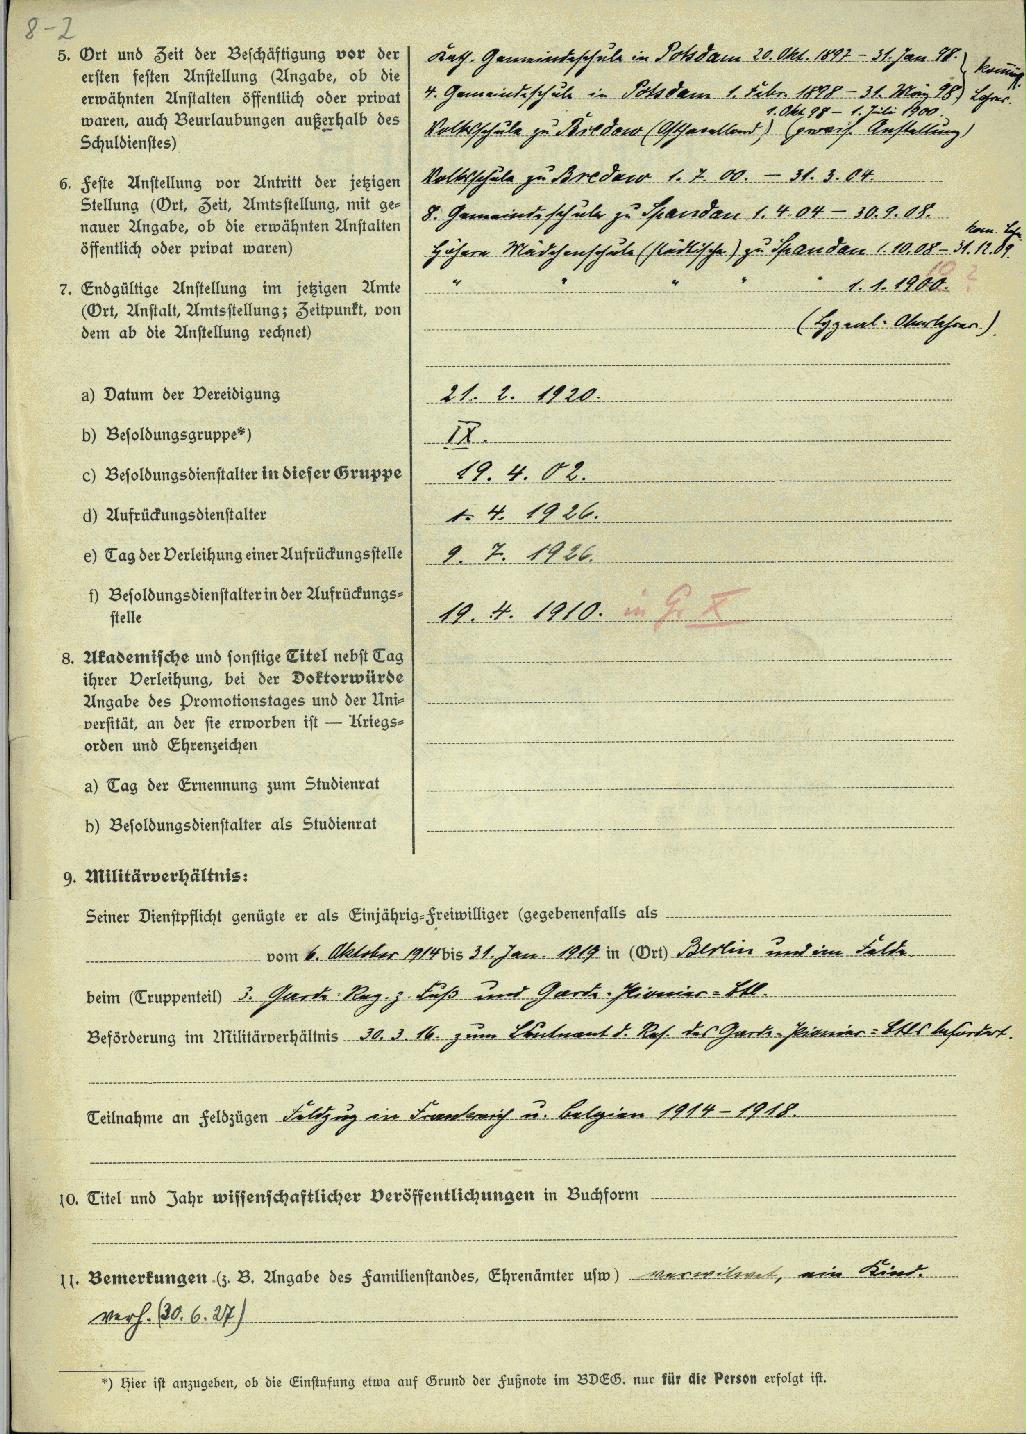 8-2
5. Ort und Zeit der Beschäftigung vor der
ersten festen Anstellung (Angabe, ob die
erwähnten Anstalten öffentlich oder privat
waren, auch Beurlaubungen außerhalb des
Schuldienstes)
Kath. Gemeindeschule in Potsdam 20. Okt. 1897 – 31. Jan. 98.
4. Gemeindeschule in Potsdam 1. Febr. 1898 – 31. März 98
Lehrer.
1. Okt. 98 – 1. Juli 1900.
Volksschule zu Bredow (Osthavelland) (provis. Anstellung)
6. Feste Anstellung vor Antritt der jetzigen
Stellung (Ort, Zeit, Amtsstellung, mit ge-
nauer Angabe, ob die erwähnten Anstalten
öffentlich oder privat waren)
Volksschule zu Bredow 1. 7. 00. – 31. 3. 04.
8. Gemeindeschule zu Spandau 1. 4. 04 – 30. 9. 08.
kom. Lehr.
Höhere Mädchenschule (städtische) zu Spandau 1. 10. 08 – 31. 12. 09.
7. Endgültige Anstellung im jetzigen Amte
(Ort, Anstalt, Amtsstellung; Zeitpunkt, von
dem ab die Anstellung rechnet)
" " " " " 1. 1. 1900. 10 ?
(Lyzeal-Oberlehrer.)
a) Datum der Vereidigung 21. 2. 1920.
b) Besoldungsgruppe*) IX.
c) Besoldungsdienstalter in dieser Gruppe 19. 4. 02.
d) Aufrückungsdienstalter 1. 4. 1926.
e) Tag der Verleihung einer Aufrückungsstelle 9. 7. 1926.
f) Besoldungsdienstalter in der Aufrückungs-
stelle 19. 4. 1910. in Gr. X
8. Akademische und sonstige Titel nebst Tag
ihrer Verleihung, bei der Doktorwürde
Angabe des Promotionstages und der Uni-
versität, an der sie erworben ist — Kriegs-
orden und Ehrenzeichen
a) Tag der Ernennung zum Studienrat
b) Besoldungsdienstalter als Studienrat
9. Militärverhältnis:
Seiner Dienstpflicht genügte er als Einjährig-Freiwilliger (gegebenenfalls als
vom 6. Oktober 1914 bis 31. Jan. 1919 in (Ort) Berlin und im Felde
beim (Truppenteil) 3. Garde-Reg. z. Fuß und Garde-Pionier-Btl.
Beförderung im Militärverhältnis 30. 3. 16. zum Leutnant d. Res. des Garde-Pionier-Btls befördert.
Teilnahme an Feldzügen Feldzug in Frankreich u. Belgien 1914 – 1918.
10. Titel und Jahr wissenschaftlicher Veröffentlichungen in Buchform
11. Bemerkungen (z. B. Angabe des Familienstandes, Ehrenämter usw) verwitwet, ein Kind.
verh. (30. 6. 27)
*) Hier ist anzugeben, ob die Einstufung etwa auf Grund der Fußnote im BDEG. nur für die Person erfolgt ist.